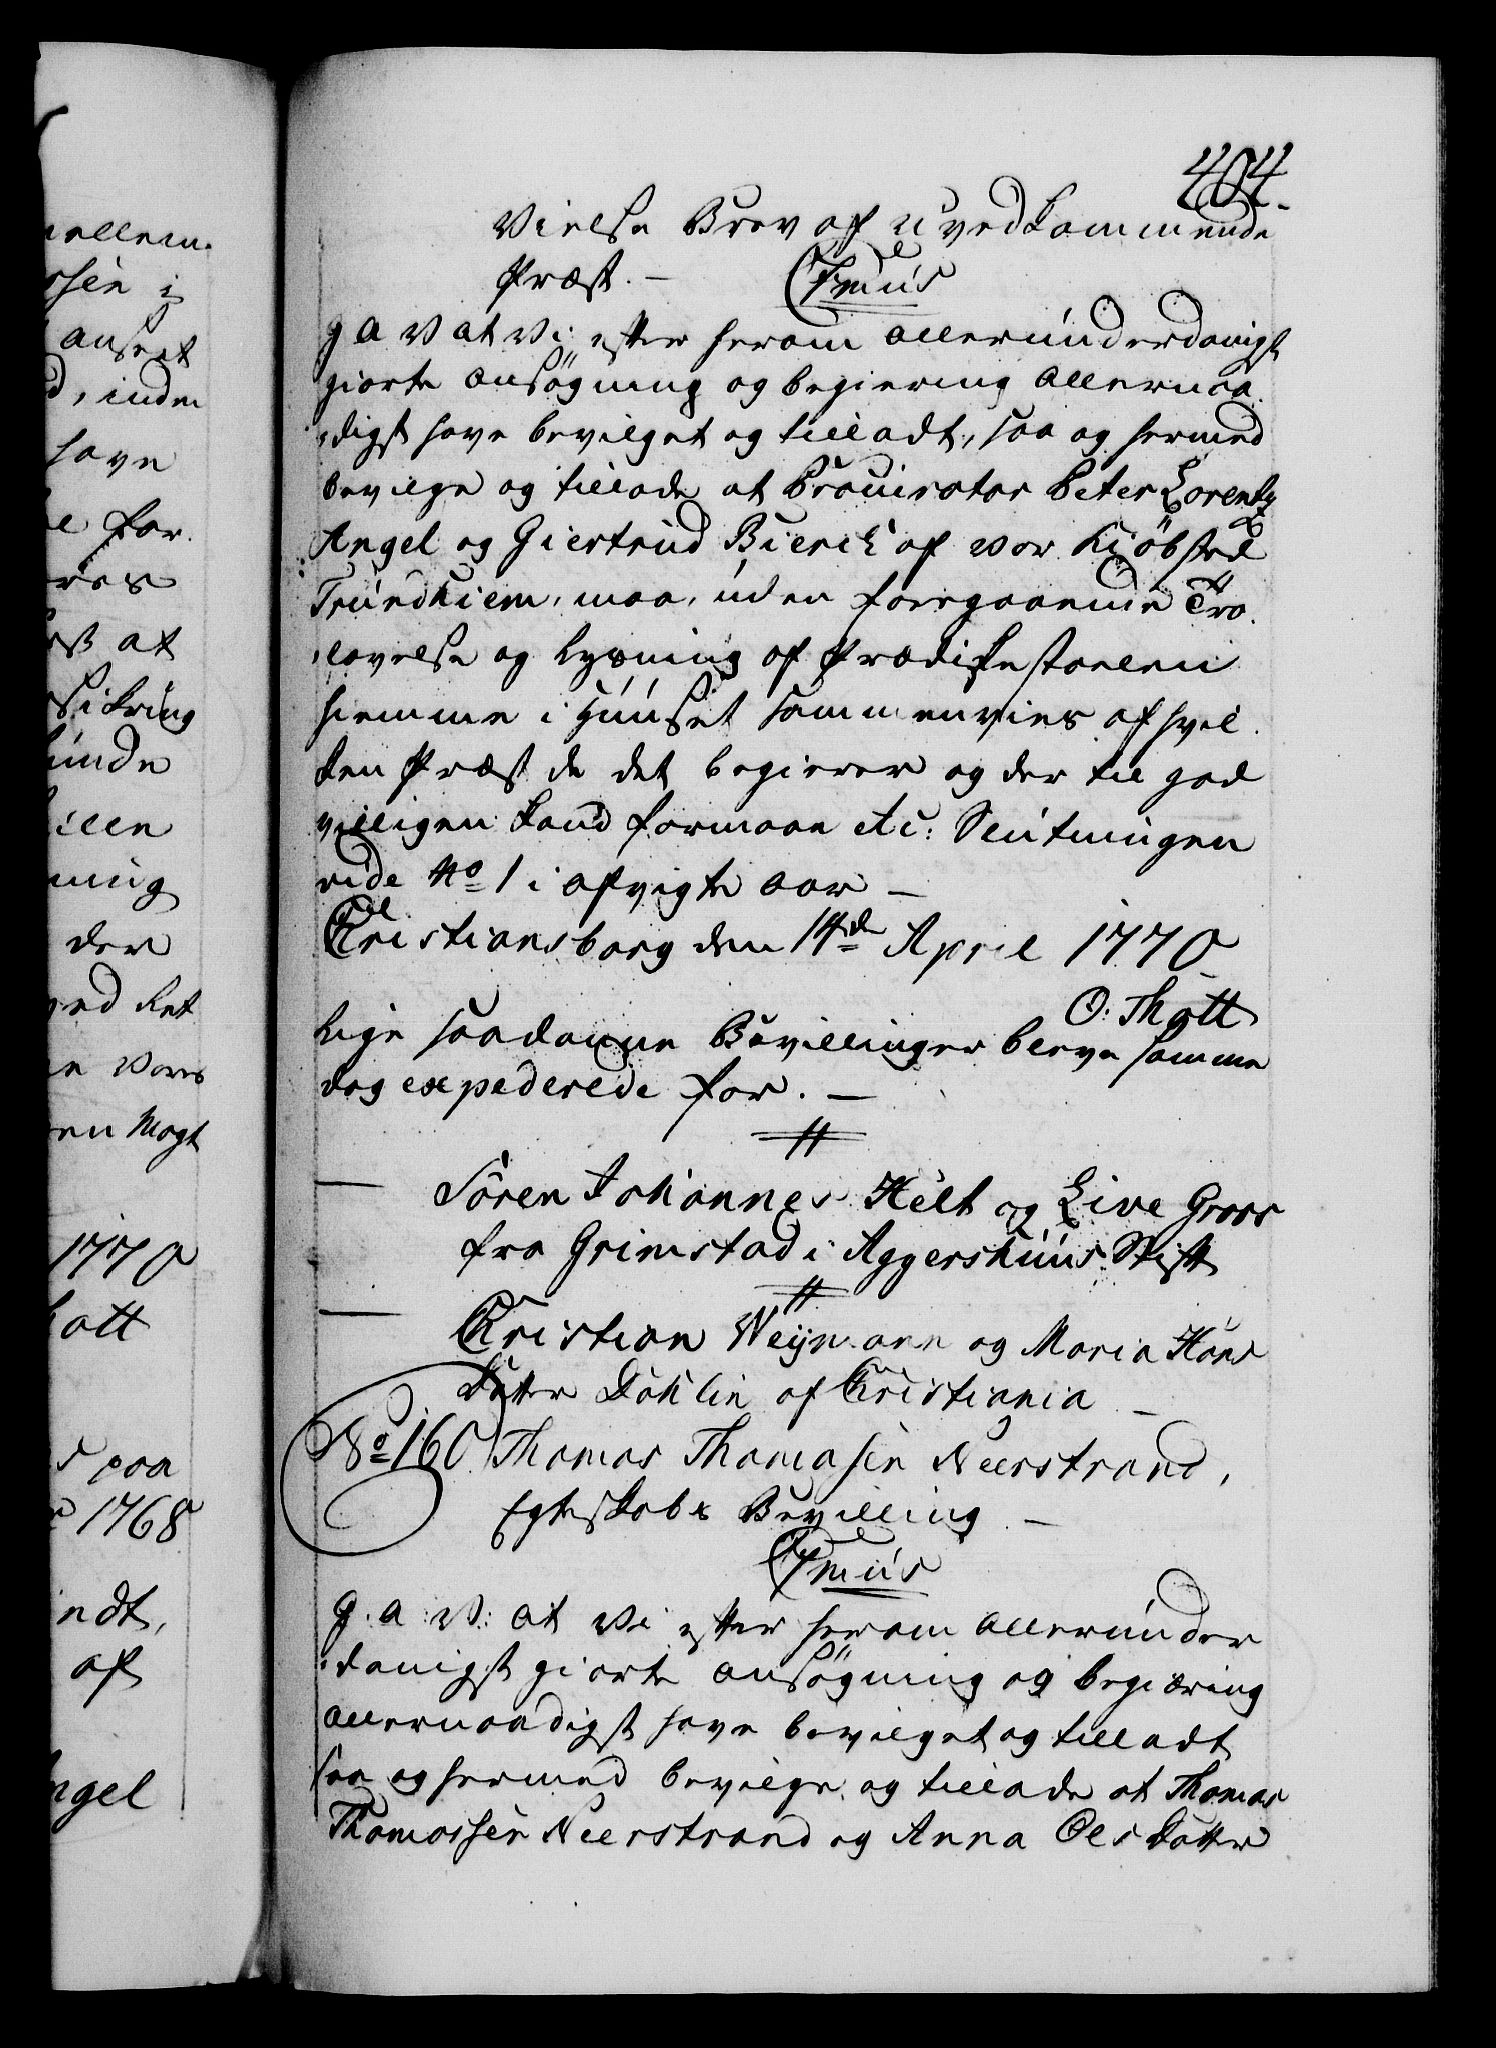 404.
Vielse Brev af uvedkommende
Præst. —
Cmus
G A V at Vi efter herom allerunderdanigst
giorte ansögning og begiering allernaa-
digst have bevilget og tilladt, saa og hermed
bevilge og tillade at Procurator Peter Lorentz
Angel og Giertrud Bierck af vor Kiöbsted
Trundhiem, maa, uden foregaaende Tro-
lovelse og Lysning af Prædikestoelen
hiemme i Huuset sammenvies af hvil-
ken Præst de det begierer og der til god
villigen kand formaae etc: Slutningen
vide No 1 i afvigte aar —
Christiansborg den 14de April 1770
O. Thott
Lige saadanne Bevillinger bleve samme
dag expederede for. —
— Sören Johannes Helt og Live Groos
fra Grimstad i Aggershuus Stift
— Christian Weijmann og Maria Hans
Datter Döhlin af Christiania —
No 160 Thomas Thomasen Neerstrand,
Egteskabs Bevilling —
Cmus
G. A: V: at Vi efter herom allerunder-
danigst giorte ansögning og begiæring
allernaadigst have bevilget og tilladt
saa og hermed bevilge og tillade at Thomas
Thomassen Neerstrand og Anna Olsdatter
mellem.
ssen i
anseet
d, inden
have
for.
res
at
Sikring
kunde
ning
der
ved Ret
Vores
en Magt
1770
hott
paa
1768
indt,
af
ngel